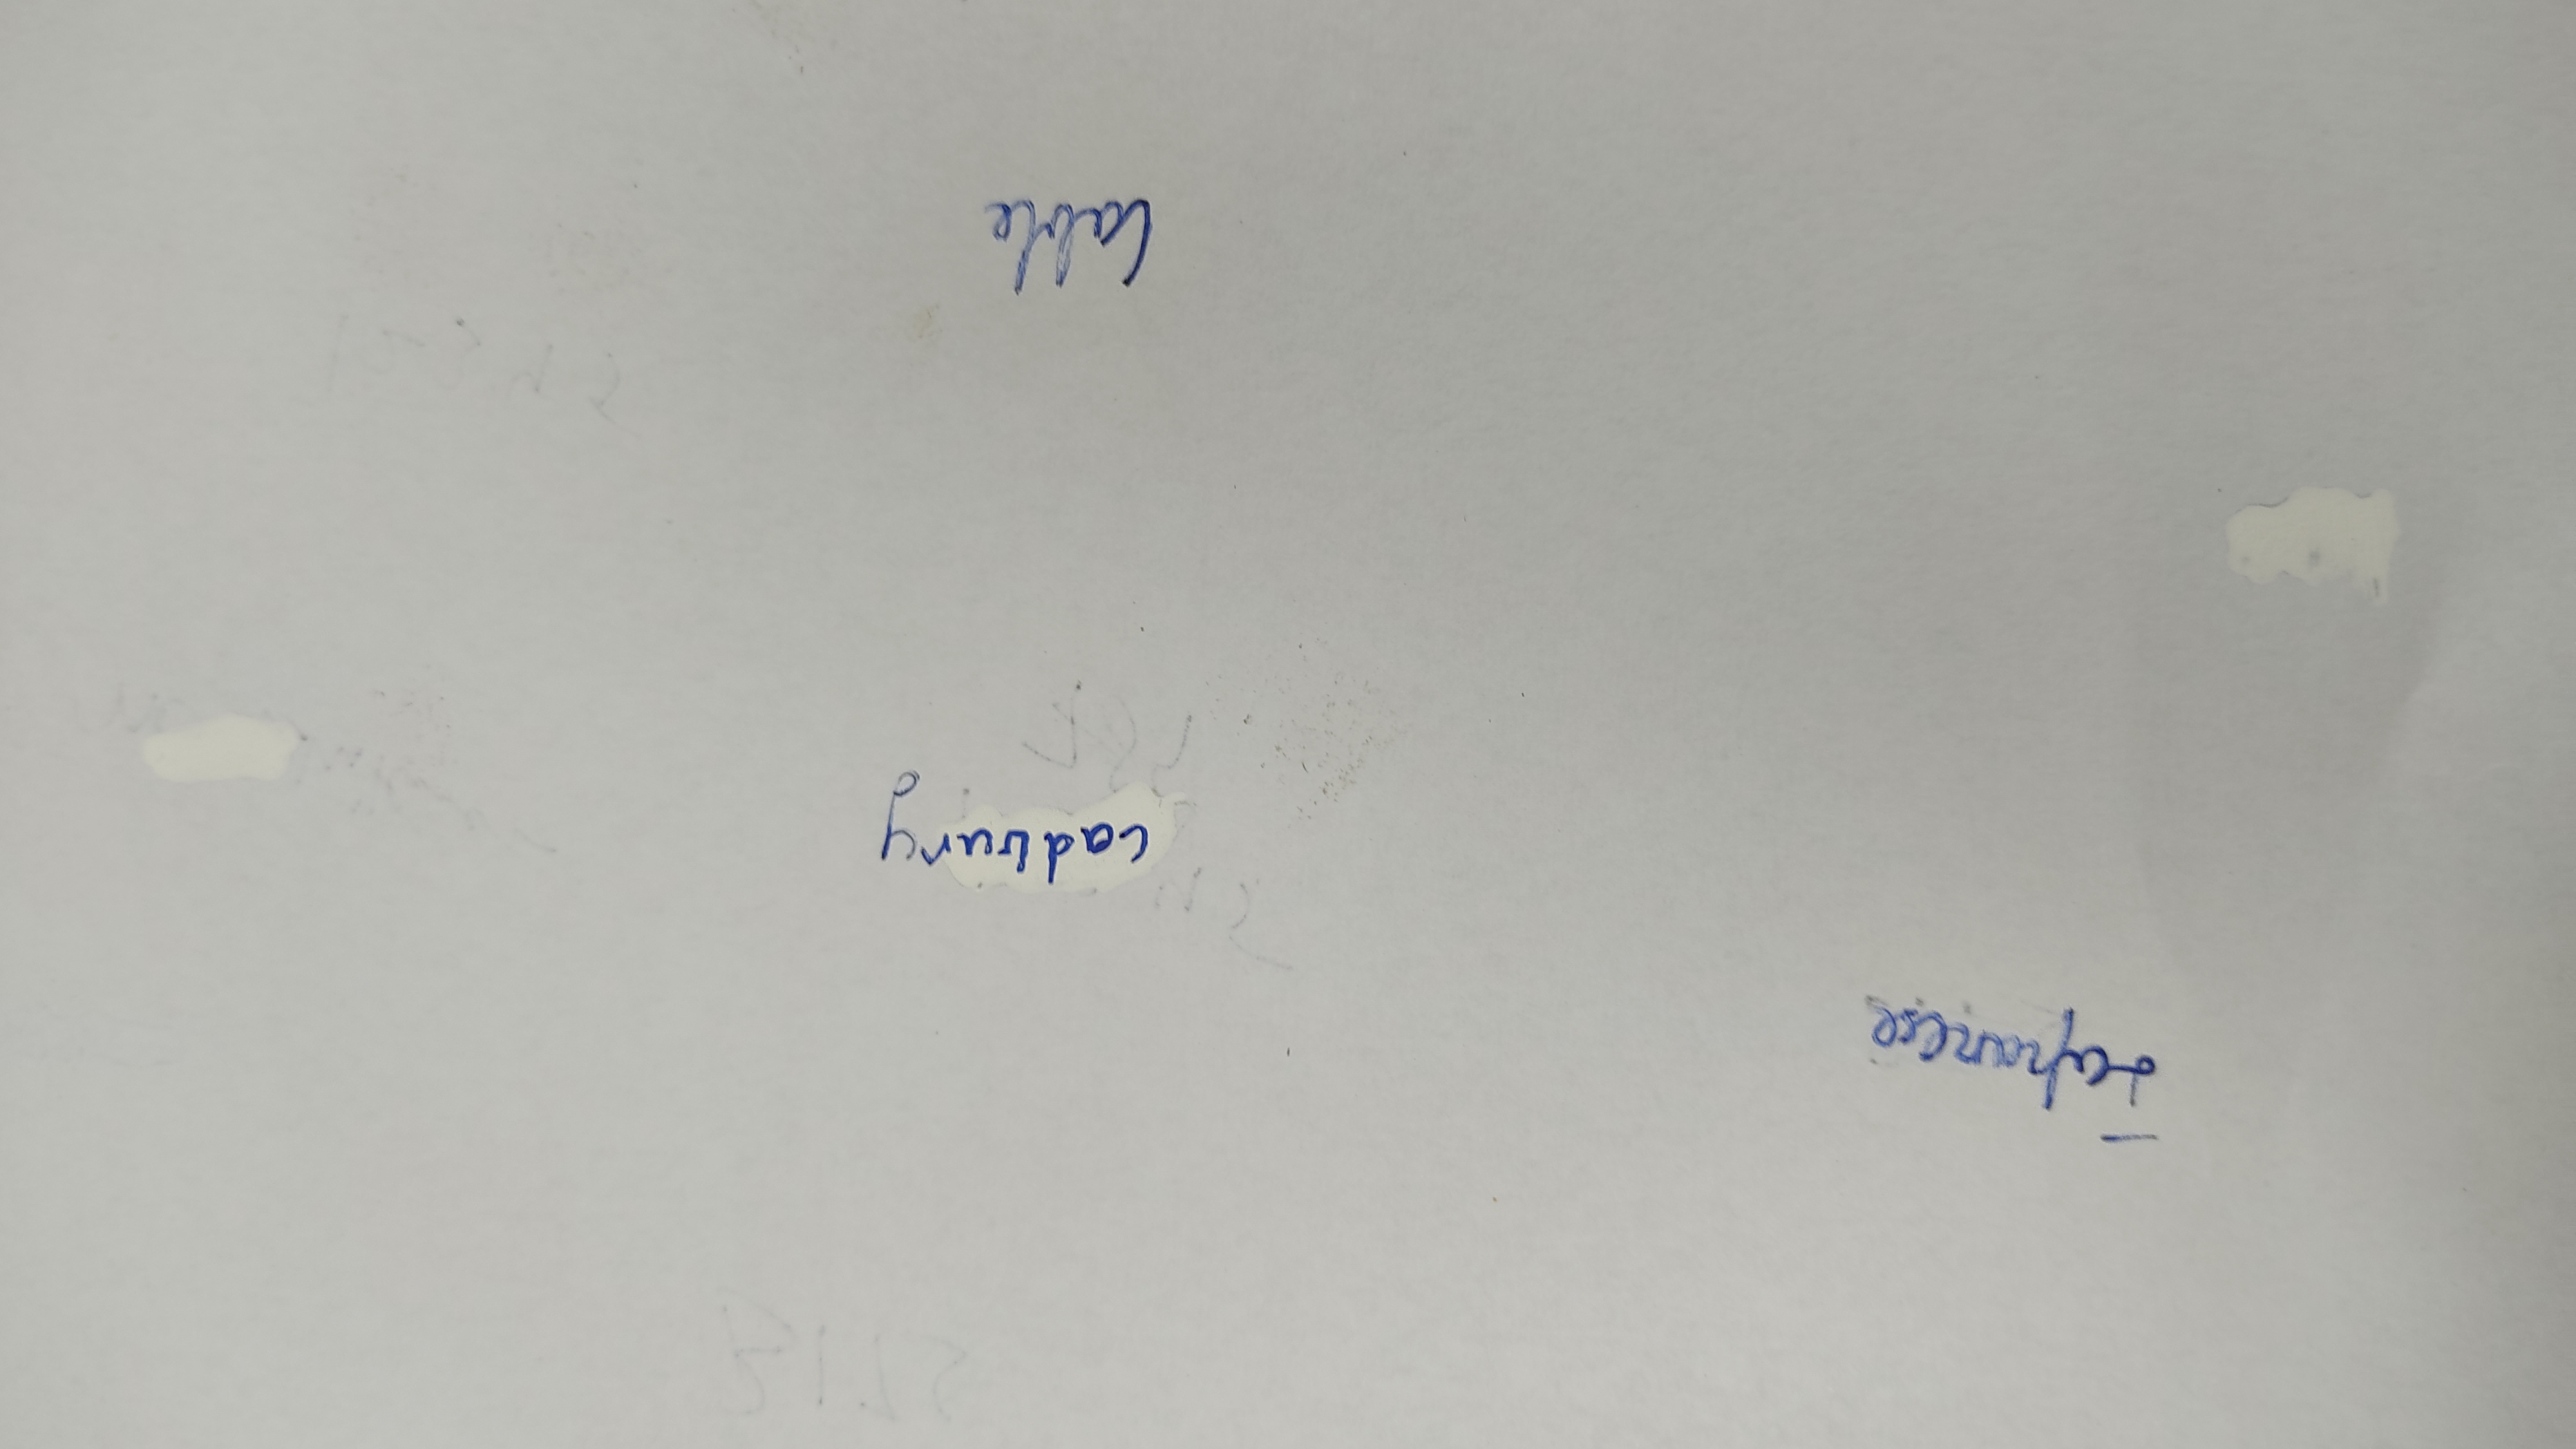 Japanese
cadbury
Cable